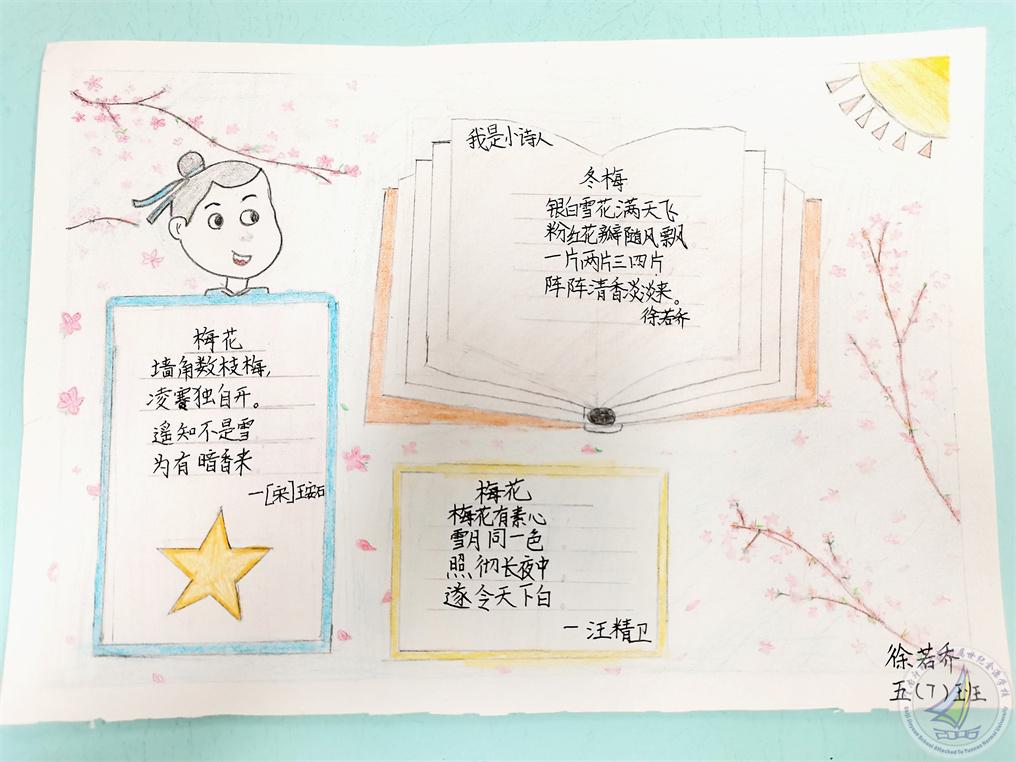 我是小诗人
冬梅
银白雪花满天飞
粉红花瓣随风飘
一片两片三四片
阵阵清香淡淡来。
徐若乔
梅花
墙角数枝梅,
凌寒独自开。
遥知不是雪
为有暗香来
—[宋]王安石
梅花
梅花有素心
雪月同一色
照彻长夜中
遂令天下白
—汪精卫
徐若乔
五(7)班